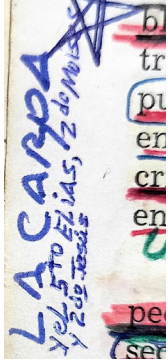 LA CARPA
y el 5TO ELÍAS, 2 do Moisés
y 2 do Jesús
b
tr
pu
en
cr
en
pe
ser